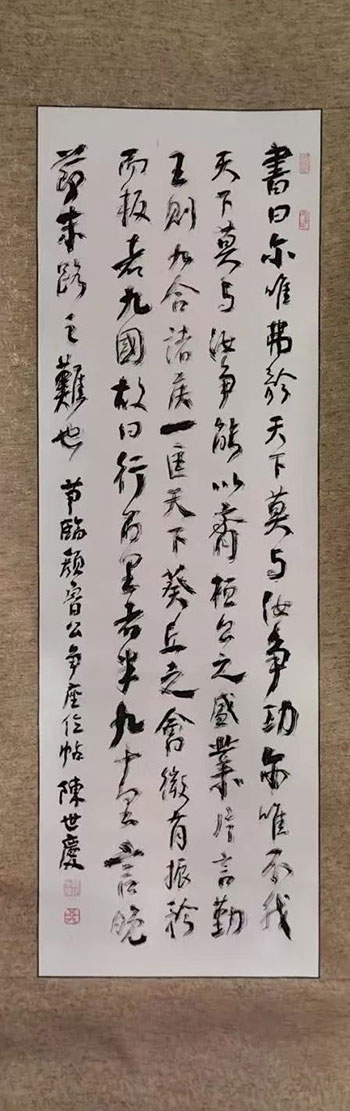 書曰尔唯弗矜天下莫与汝争功尔唯不伐
天下莫与汝争能以齊桓公之盛業片言勤
王則九合諸侯一匡天下葵丘之會微有振矜
而叛者九國故曰行百里者半九十里言晚
節末路之難也 节臨顏魯公争座位帖 陳世慶